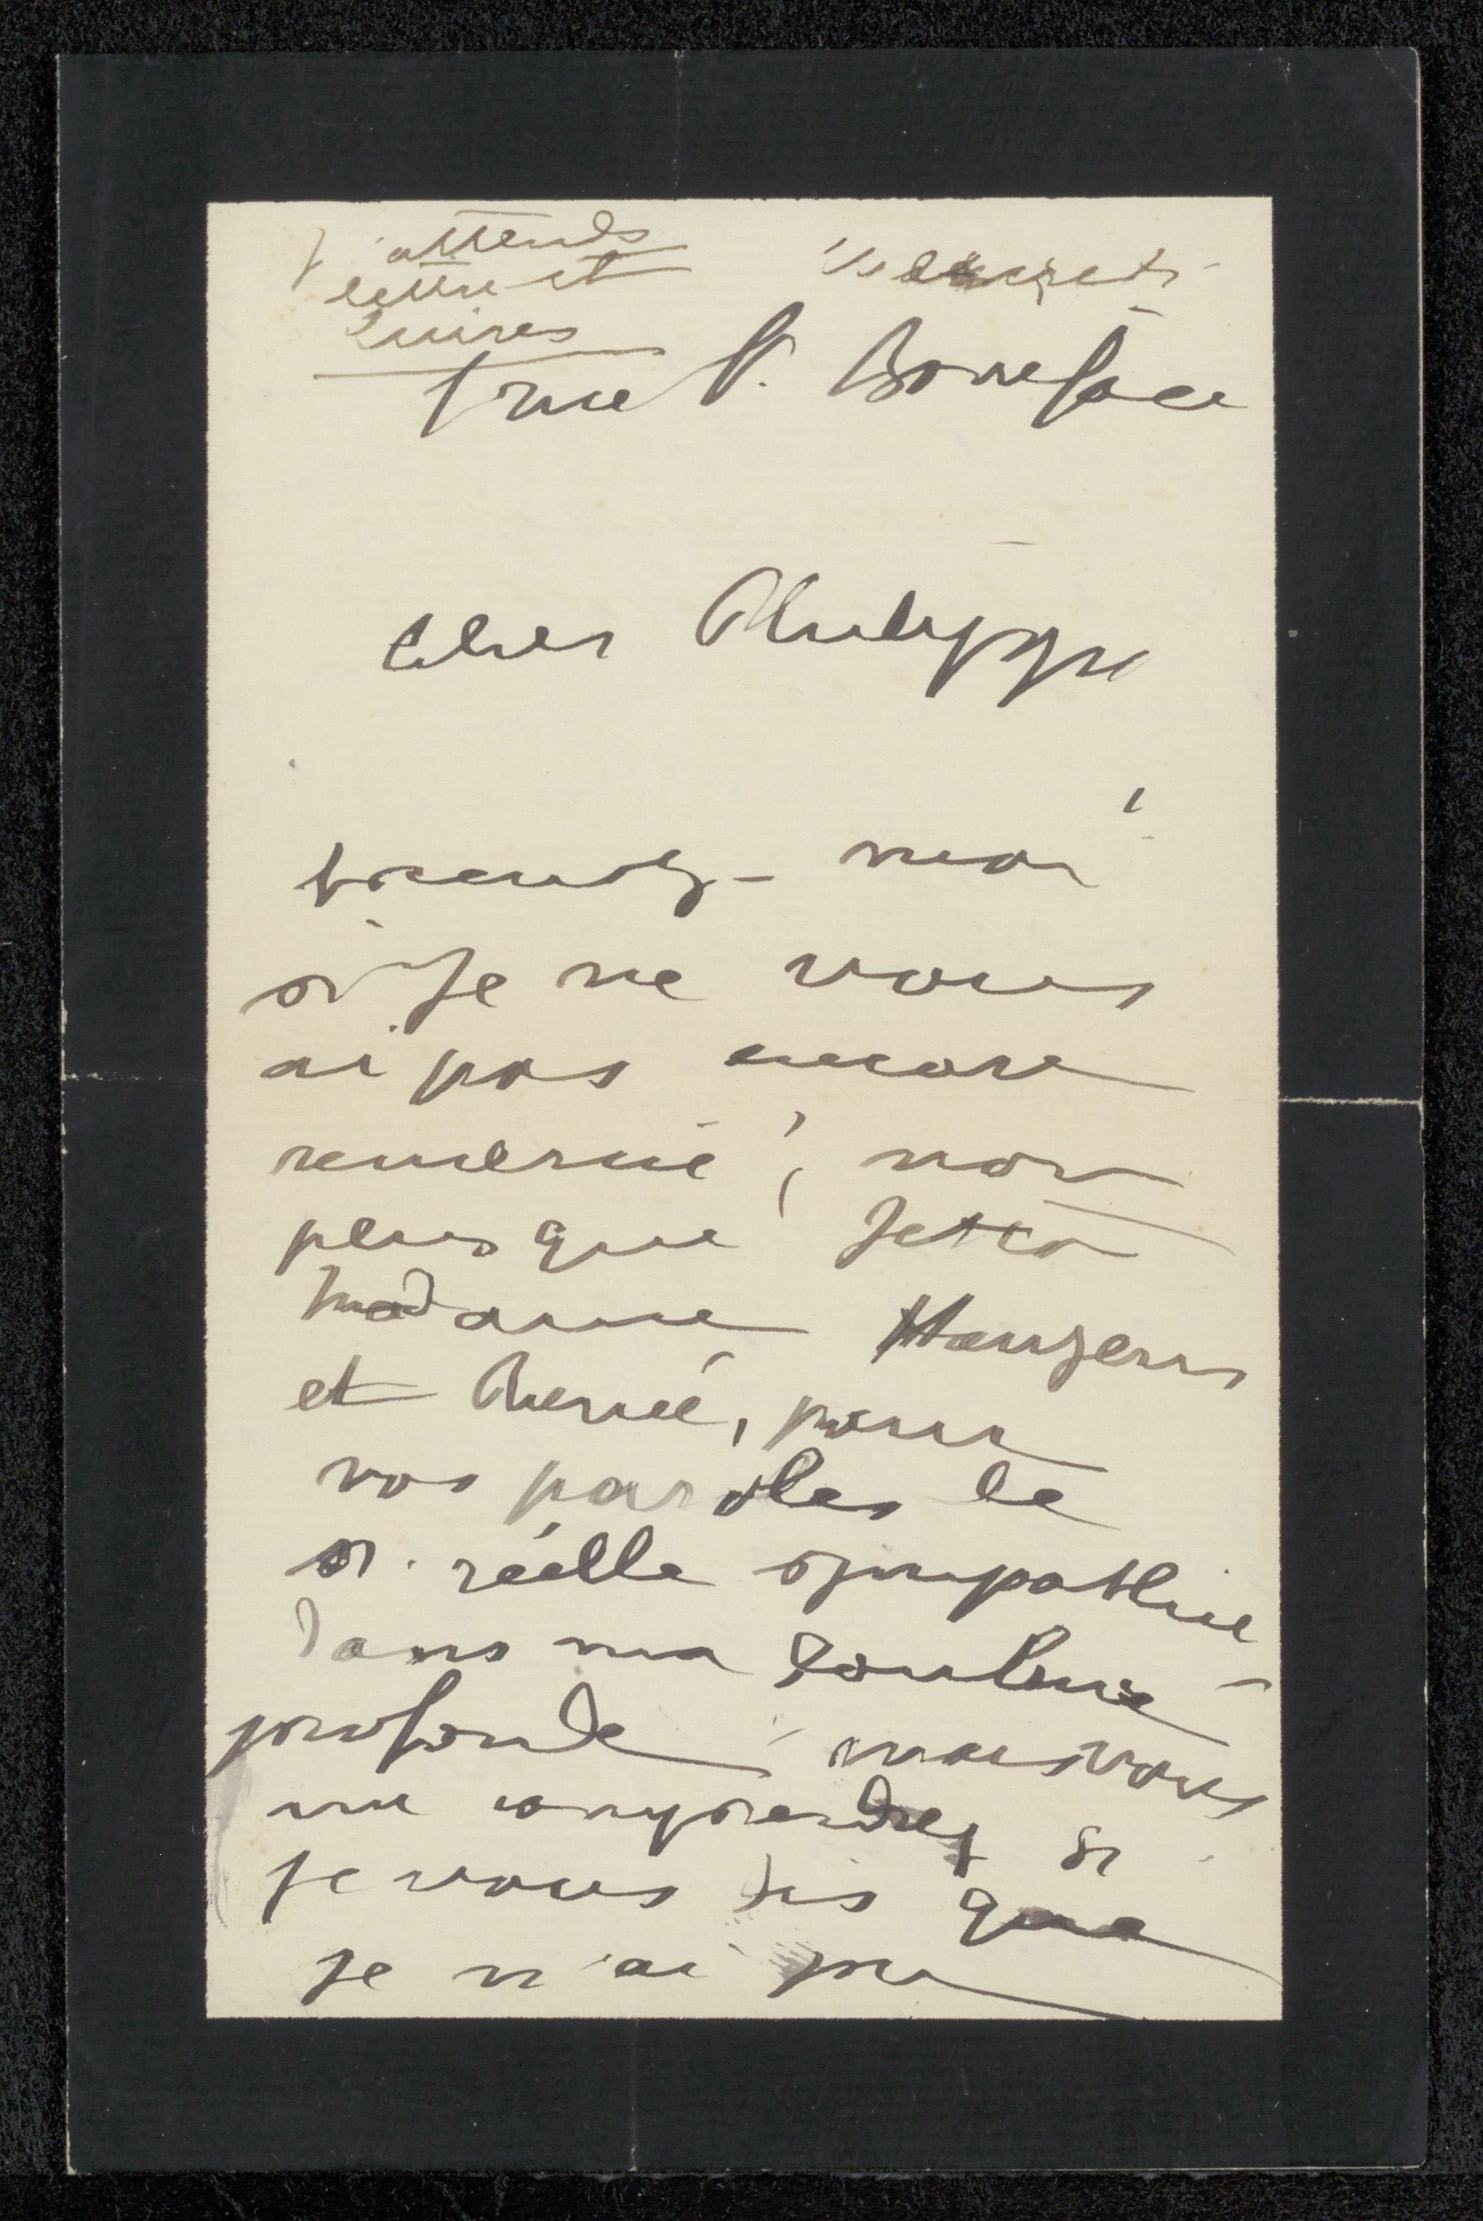 J'attends
lettre et
livres
Vendredi
1 rue St. Boniface
Cher Philippe
Excusez-moi
si je ne vous
ai pas encore
remercié, non
plus que Jetta
Madame
et Renée, pour
vos paroles de
si réelle sympathie
dans ma douleur
profonde mais vous
me comprendrez si
je vous dis que
je n'ai pu